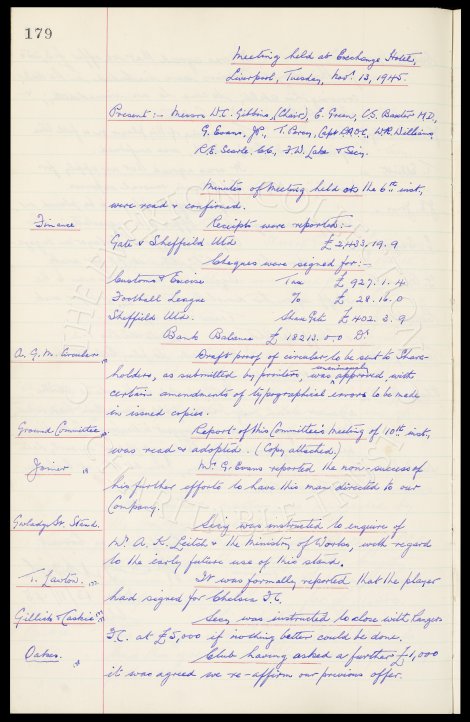 179
Meeting held at Exchange Hotel,
Liverpool, Tuesday, Novr. 13, 1945
Present :- Messrs W.C. Gibbins, (Chair), E. Green, C.S. Baxter M.D,
G. Evans, J.P., T. Percy, Capt. W.R. Williams,
R.E. Searle, C.C., F.W. Lake & Secy.
Minutes of Meeting held on the 6th inst,
were read & confirmed.
Finance
Receipts were reported:-
Gate v Sheffield Utd £ 2,433.19.9
Cheques were signed for:-
Customs & Excise Tax £ 927.1.4
Football League % £ 28.16.0
Sheffield Utd. Share Gate £ 402.3.9
Bank Balance £ 18213.0.0 Dr
A.G.M. Circular
Draft proof of circular to be sent to Share-
holders, as submitted by printers, was unanimously approved, with
certain amendments of typographical errors to be made
in issued copies.
Ground Committee
Report of this Committee's meeting of 10th inst,
was read & adopted. (Copy attached.)
Joiner
Mr G. Evans reported the non-success of
his further efforts to have this man directed to our
Company.
Gwladys St. Stand.
Secy was instructed to enquire of
Mr A. K. Leitch & the Ministry of Works, with regard
to the early future use of this stand.
T. Lawton.
It was formally reported that the player
had signed for Chelsea F.C.
Gillick & Caskie
Secy was instructed to close with Rangers
F.C. at £5,000 if nothing better could be done.
Oakes.
Club having asked a further £1,000
it was agreed we re-affirm our previous offer.